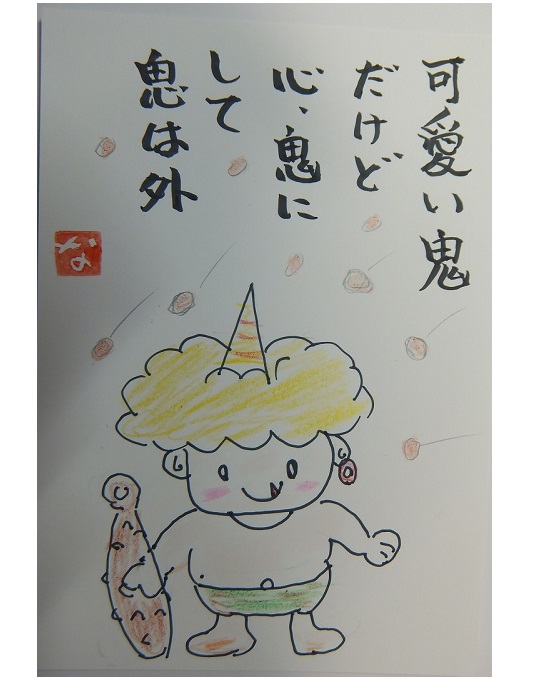 可愛い鬼
だけど
心、鬼に
して
鬼は外